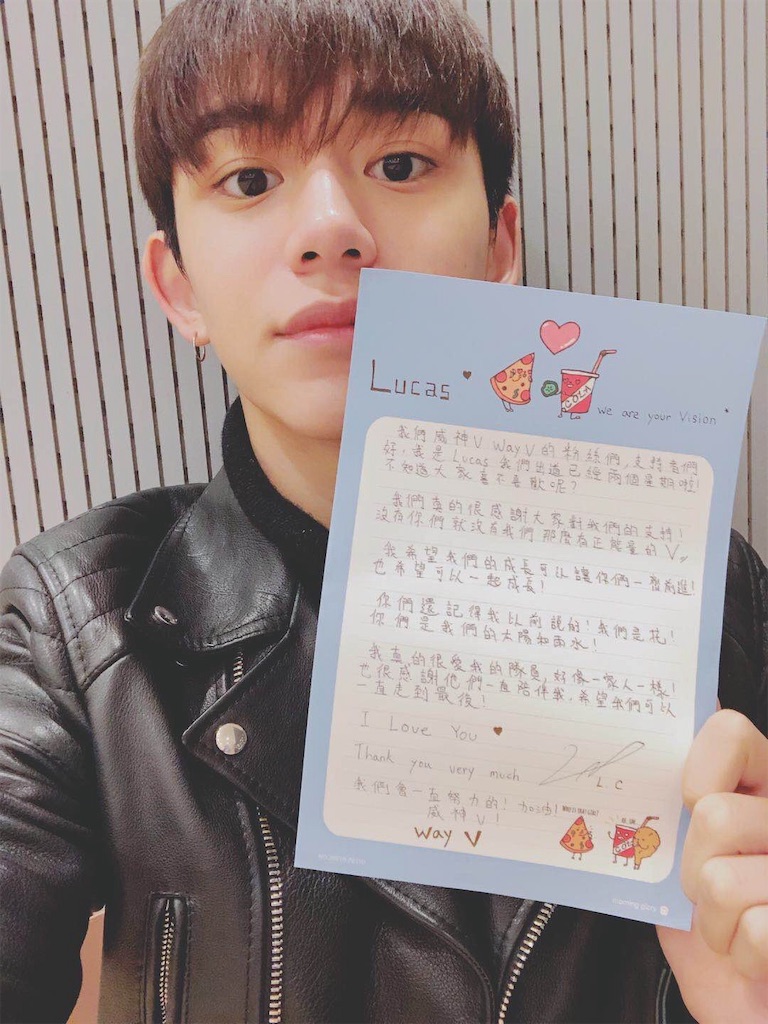 Lucas
COLA
we are your Vision
我們威神V WayV的粉絲們,支持者們
好,我是Lucas 我們出道已經兩個星期啦!
不知道大家喜不喜歡呢?
我們真的很感謝大家對我們的支持!
沒有你們就沒有我們 那麼有正能量的V
我希望我們的成長可以讓你們一齊前進!
也希望可以一起成長!
你們還記得我以前說的!我們是花!
你們是我們的太陽和雨水!
我真的很愛我的隊員,好像一家人一樣!
也很感謝他們一直陪伴我,希望我們可以
一直走到最後!
I Love You
Thank you very much
LC
我們會一直努力的!加油!
威神V!
Way V
COLA